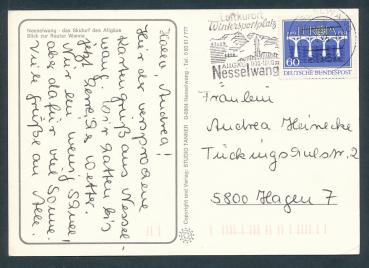 Nesselwang - das Skidorf des Allgäus
Blick zur Reuter Wanne
Hallo, Andrea!
Hier der versprochene
Kartengruß aus Nessel-
wang. Wir hatten bis
jetzt herrliches Wetter.
Nur ein wenig Schnee,
aber dafür viel Sonne.
Viele Grüße an Alle.
Copyright und Verlag: STUDIO TANNER D-8964 Nesselwang - Tel.
Luftkurort
Wintersportplatz
ALLGÄU
Nesselwang
EUROPA
60
DEUTSCHE BUNDESPOST
Fräulein
Andrea Heinecke
Tückingschulstr. 2
5800 Hagen 7